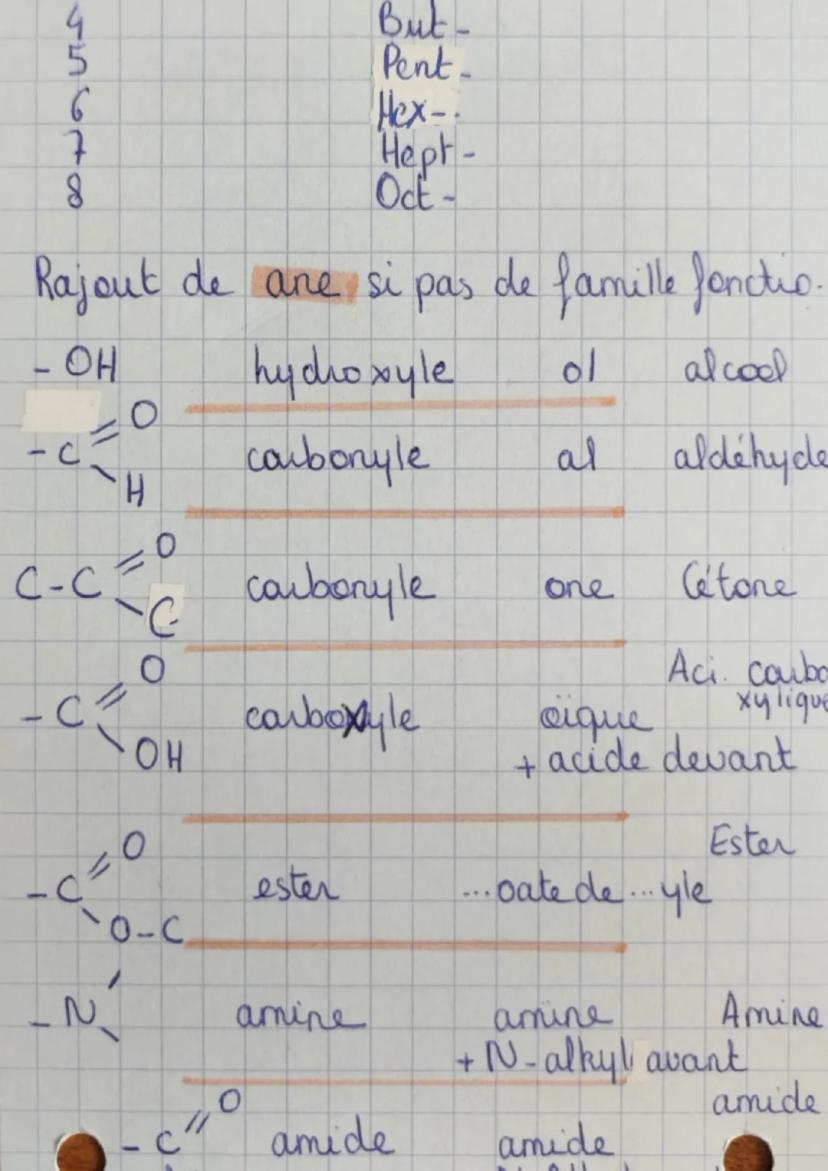 4 But-
5 Pent-
6 Hex-
7 Hept-
8 Oct-
Rajout de ane si pas de famille fonctio.
- OH hydroxyle ol alcool
O
- C carbonyle al aldéhyde
H
O
C-C carbonyle one Cétone
C
O Aci. carbo
xylique
- C carboxyle oïque
OH + acide devant
O Ester
- C ester ...oate de ...yle
O-C
- N amine amine Amine
+ N-alkyl avant
O amide
- C amide amide